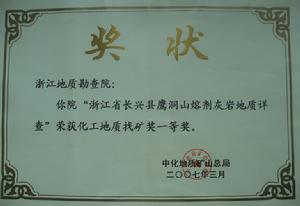 奖状
浙江地质勘查院：
你院“浙江省长兴县鹰洞山熔剂灰岩地质详
查”荣获化工地质找矿奖一等奖。
中化地质矿山总局
二〇〇七年三月